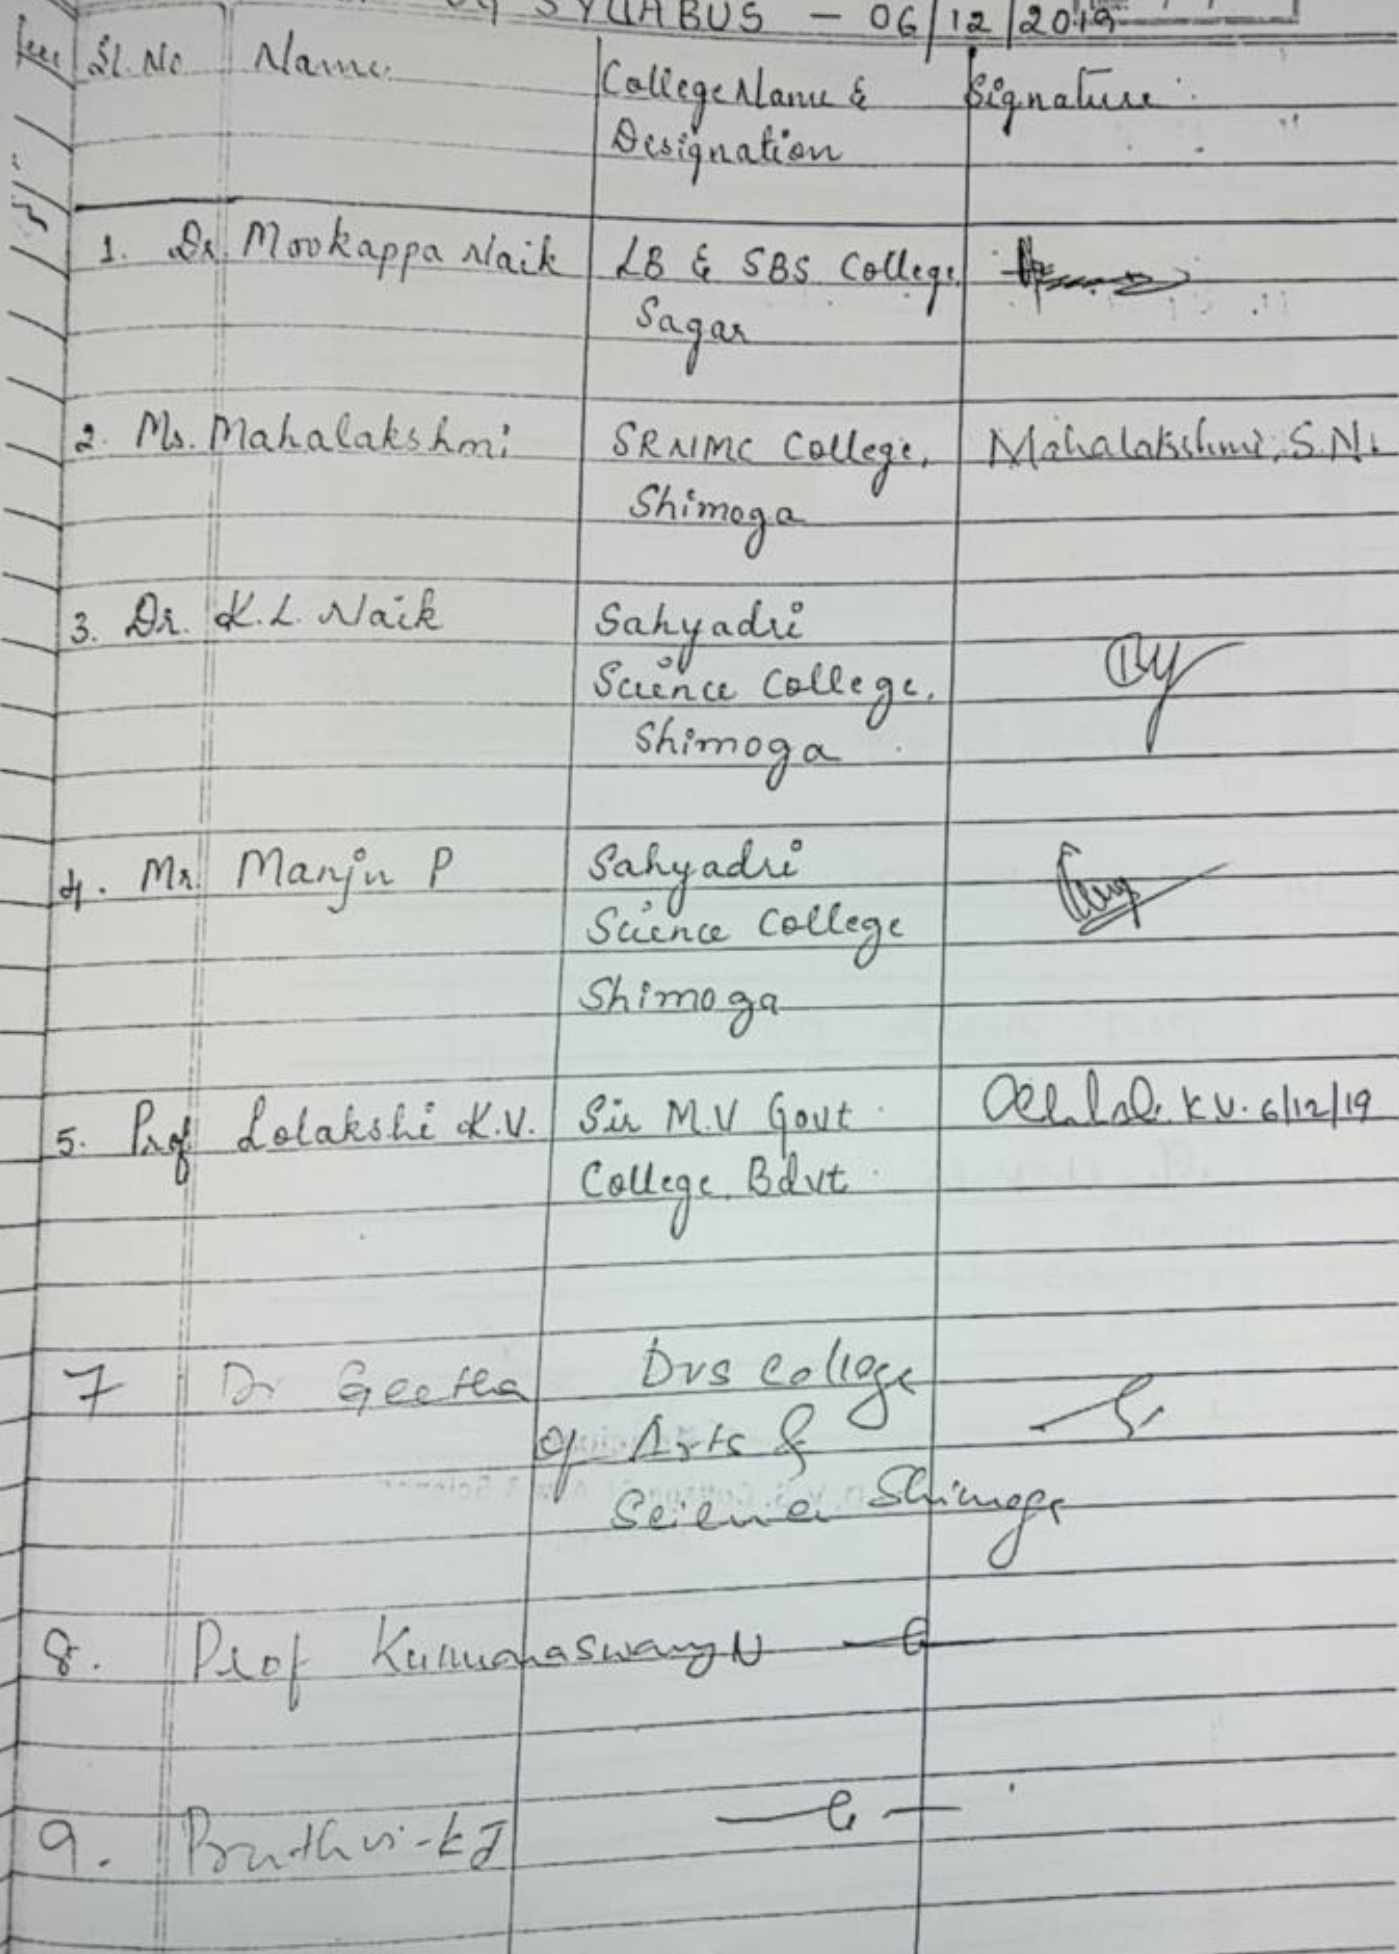 SYLLABUS - 06/12/2019
Sl. No Name College Name & Signature
Designation
1. Dr. Mookappa Naik LB & SBS College,
Sagar
2. Ms. Mahalakshmi SRNMC College, Mahalakshmi, S.N.
Shimoga
3. Dr. K.L. Naik Sahyadri
Science College,
Shimoga
4. Mr. Manju P Sahyadri
Science College
Shimoga
5. Prof Lolakshi K.V. Sir M.V Govt K V. 6/12/19
College, Bdvt
7 Dr Geetha DVS College
of Arts &
Science Shimoga
8. Prof Kumaraswamy N
9. Pruthvi-KJ